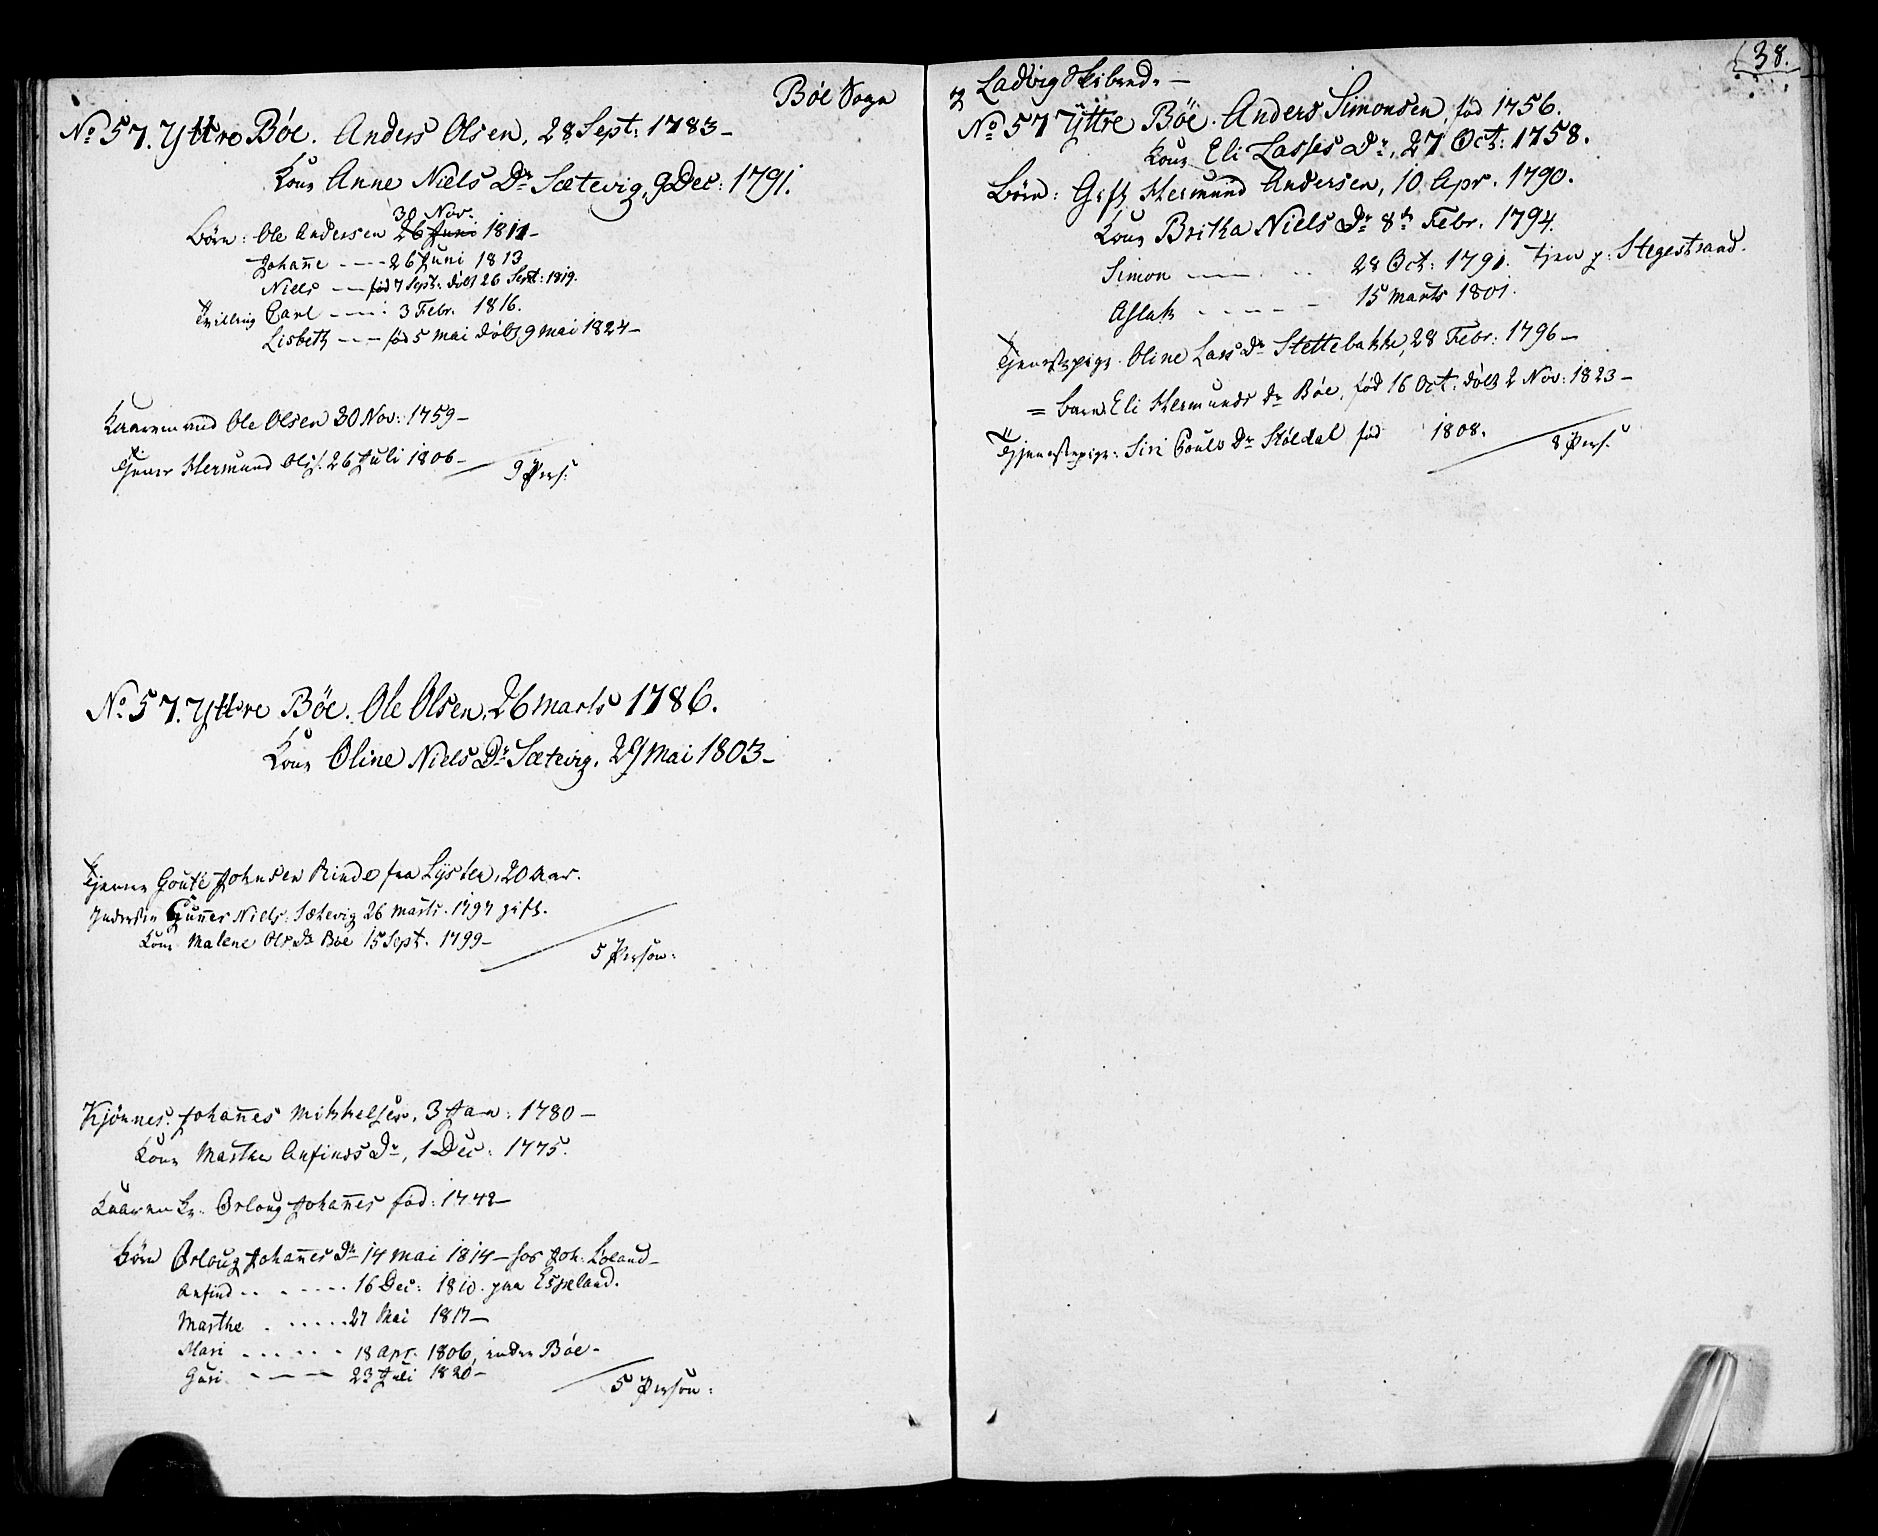 Böe Sogn
No 57. Yttre Böe. Anders Olsen, 28 Sept: 1783 –
Kone Anne Niels Dr Sætevig, 9 Dec: 1791.
30 Nov.
Börn: Ole Andersen 26 Juni 1811 –
Johañe - - - - 26 Juni 1813
Niels - - - föd 7 Sept: döbt 26 Sept: 1819.
Tvilling Carl - - - : 3 Febr. 1816.
Lisbeth - - - föd 5 Mai döbt 9 Mai 1824 –
Kaarmand Ole Olsen 30 Nov: 1759 –
Tjener Hermund Ols: 26 Juli 1806 –
9 Pers:
No 57. Yttre Böe. Ole Olsen, 26 Marts 1786.
Kone Oline Niels Dr Sætevig, 29 Mai 1803 –
Tjener Gouti Johnsen Rinde fra Lyster, 20 Aar.
Inderste Guñer Niels: Sætevig 26 Marts. 1797 gift.
Kone Malene Ols Dr Böe 15 Sept. 1799 –
5 Person:
Kjönnes: Johañes Mikkelsen, 3 Jan: 1780 –
Kone Marthe Anfinds Dr, 1 Dec: 1775.
Kaarenk: Orloug Johañes föd: 1748 –
Börn Orloug Johañes Dr 14 Mai 1814 – hos Joh: Löland –
Anfind - - - - - - - 16 Dec: 1810. paa Espeland.
Marthe - - - - - - 27 Mai 1817 –
Mari - - - - - - 18 Apr. 1806, inden Böe –
Guri - - - 23 Juli 1820 –
5 Person:
38.
Ladvig Skibred. –
No 57 Yttre Böe. Anders Simonsen, föd 1756.
Kone Eli Lasses Dr, 27 Oct: 1758.
Börn: Gift Hermund Andersen, 10 Apr. 1790.
Kone Britha Niels Dr 8de Febr. 1794.
Simon - - - - - 28 Oct: 1791. tjen p: Stegestrand.
Aslak - - - - - 15 Marts 1801.
Tjenestepige. Oline Lars Dr Stettebakke, 28 Febr: 1796 –
= barn Eli Hermunds Dr Böe, föd 16 Oct. döbt 2 Nov: 1823 –
Tjenestepige: Siri Pouls Dr Stöldal föd 1808.
8 Pers.